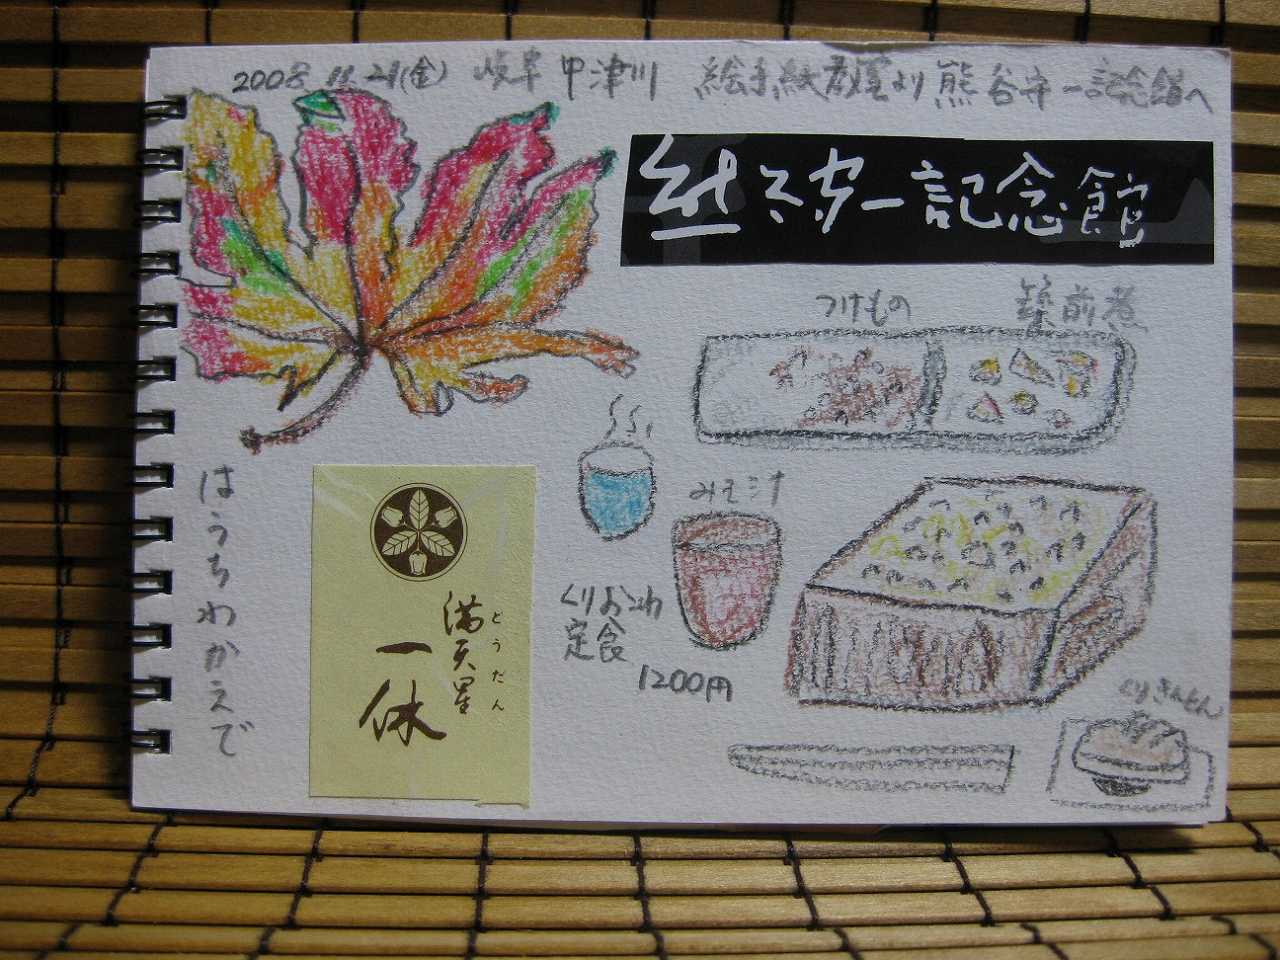 2008.11.21(金) 岐阜 中津川 絵手紙教室より熊谷守一記念館へ
守一記念館
つけもの
築前煮
みそ汁
くりおこわ
定食
1200円
くりきんとん
はうちわかえで
満天星
どうだん
一休